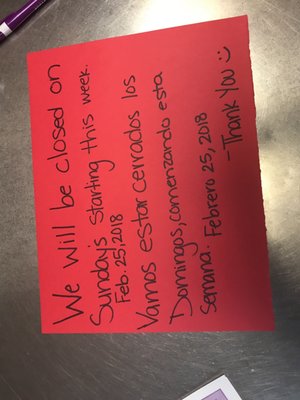 We will be closed on
Sunday's starting this week.
Feb. 25, 2018
Vamos estar cerrados los
Domingos, comenzando esta
Semana. Febrero 25, 2018
-Thank You :)